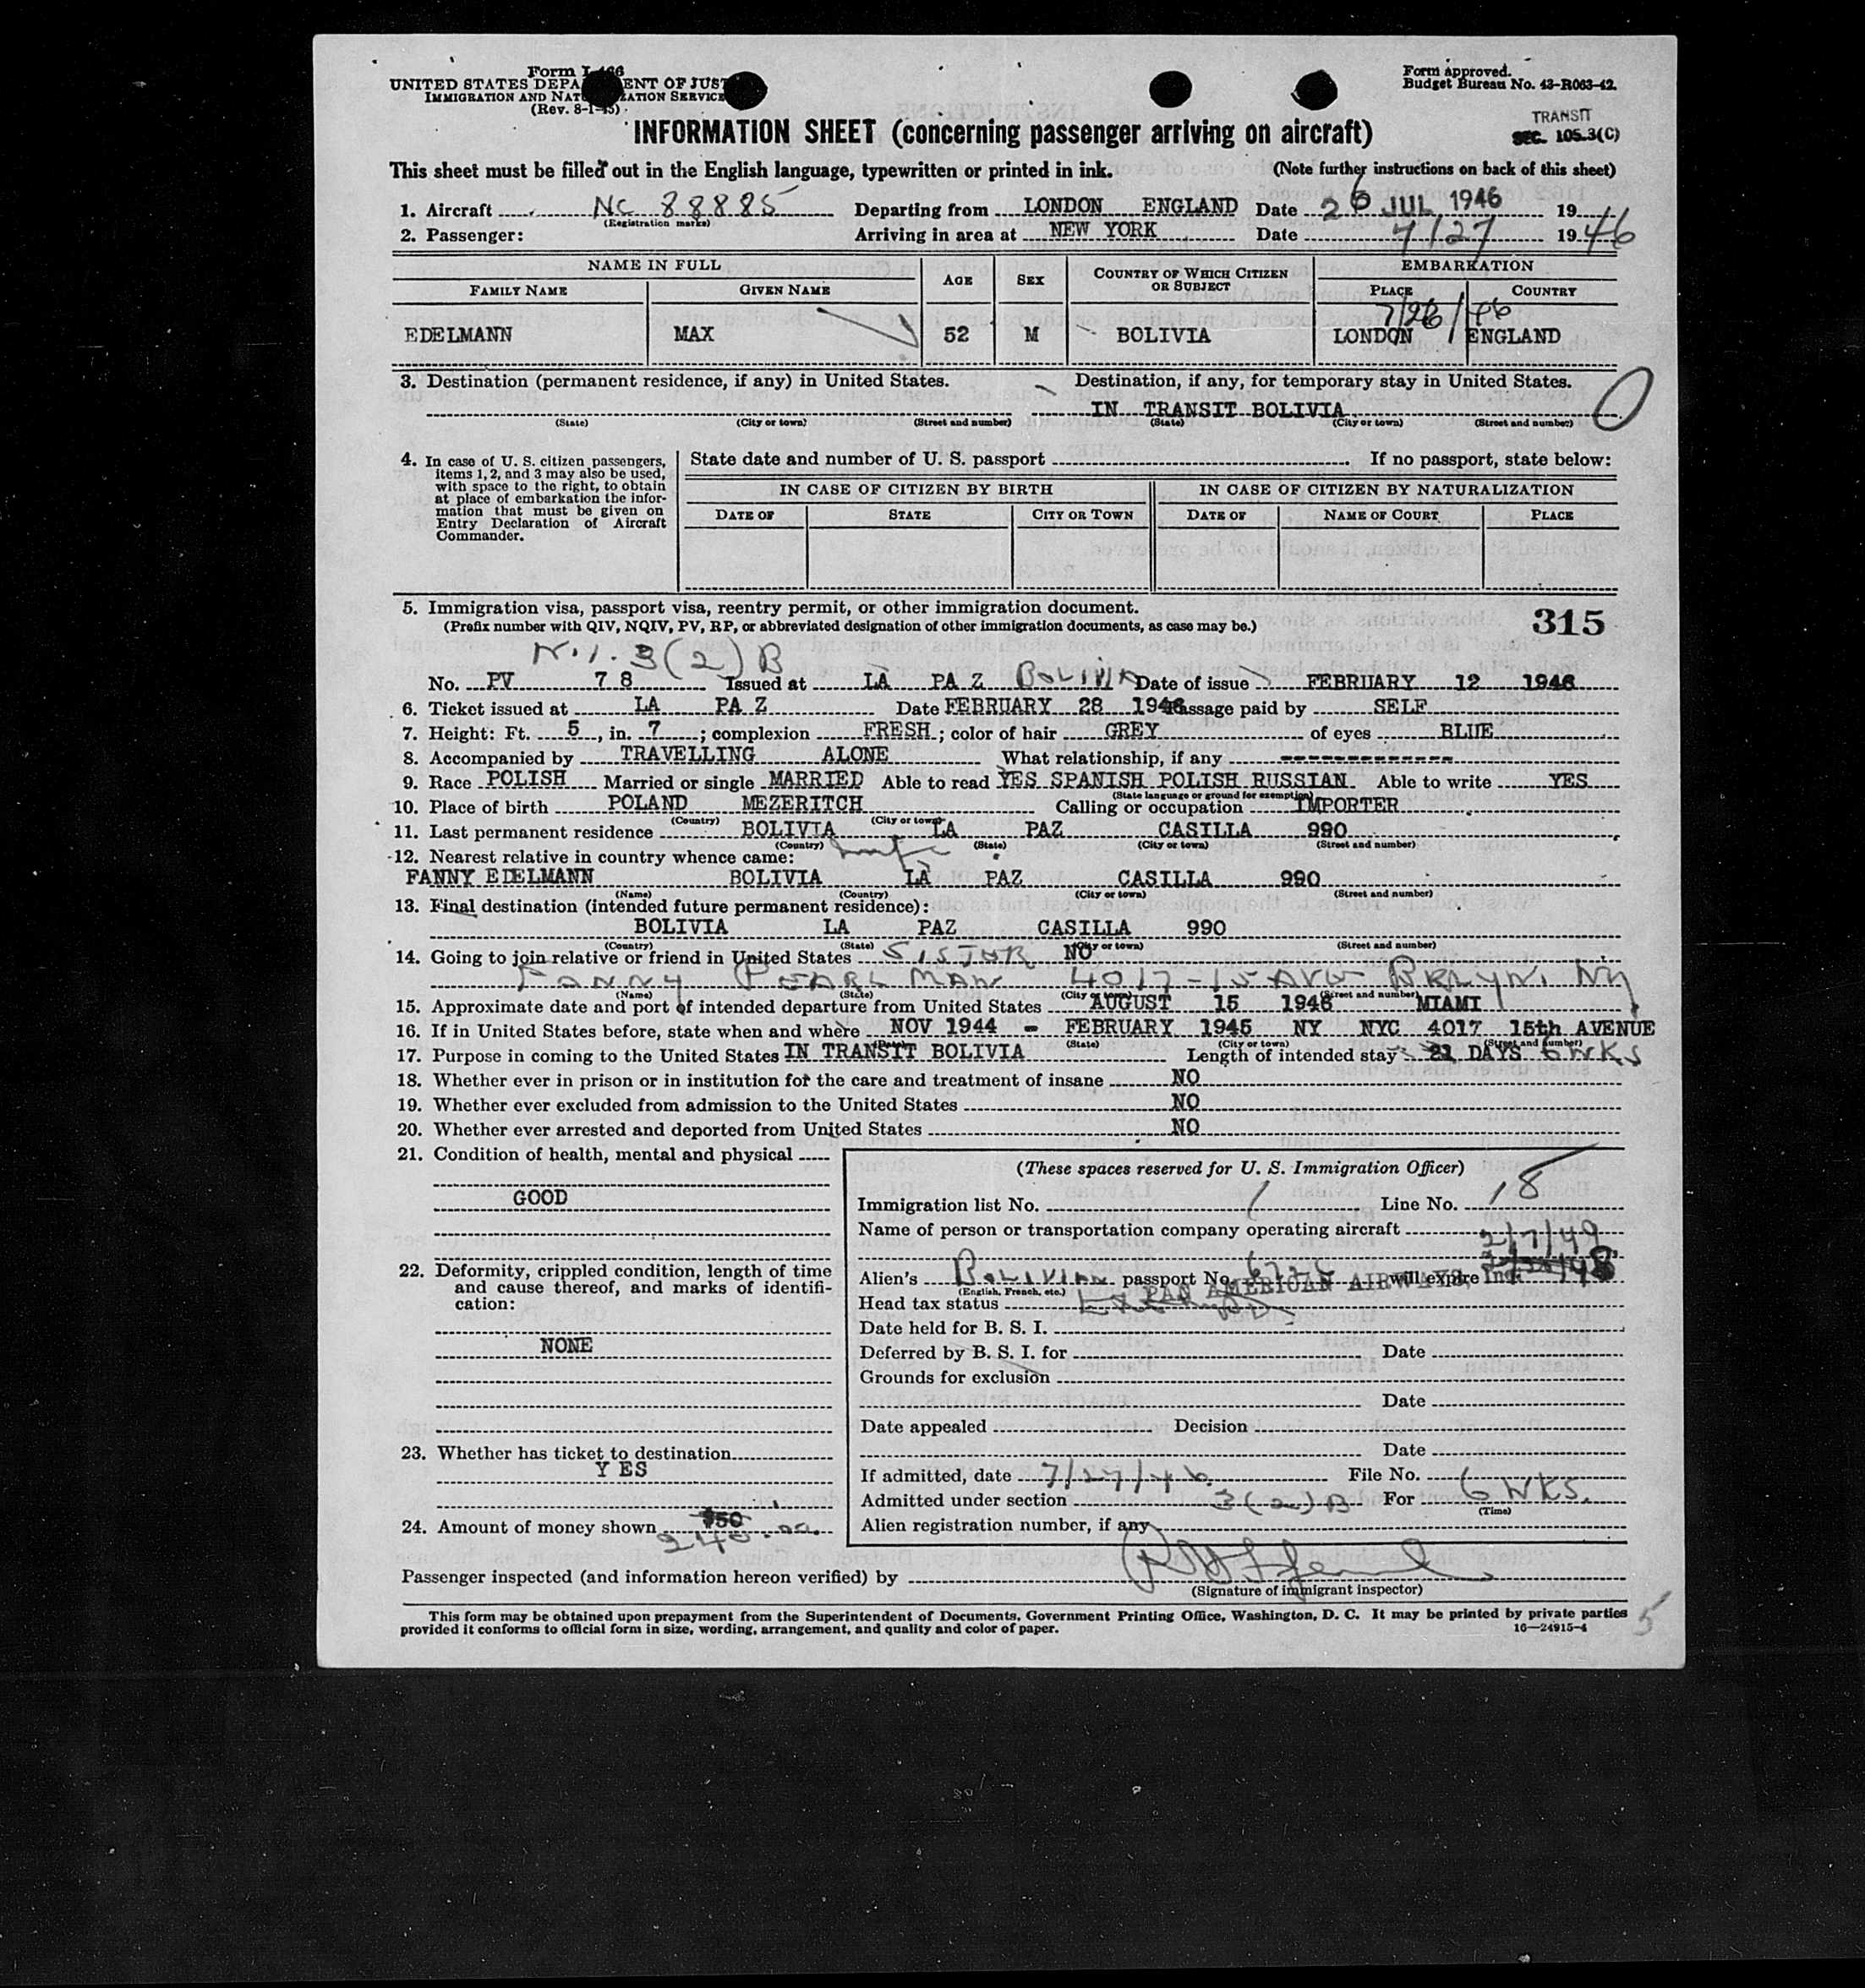 Form I-466
UNITED STATES DEPA ENT OF JUST
IMMIGRATION AND NAT ZATION SERVICE
(Rev. 8-1-45)
Form approved.
Budget Bureau No. 43-R063-42.
TRANSIT
SEC. 105.3(C)
INFORMATION SHEET (concerning passenger arriving on aircraft)
This sheet must be filled out in the English language, typewritten or printed in ink. (Note further instructions on back of this sheet)
1. Aircraft NC 88885 Departing from LONDON ENGLAND Date 26 JUL 1946 19 46
(Registration marks)
2. Passenger: Arriving in area at NEW YORK Date 7/27 1946
NAME IN FULL AGE SEX COUNTRY OF WHICH CITIZEN OR SUBJECT EMBARKATION
FAMILY NAME GIVEN NAME PLACE COUNTRY
7/26/46
EDELMANN MAX 52 M BOLIVIA LONDON ENGLAND
3. Destination (permanent residence, if any) in United States. Destination, if any, for temporary stay in United States.
IN TRANSIT BOLIVIA
(State) (City or town) (Street and number) (State) (City or town) (Street and number)
4. In case of U. S. citizen passengers, items 1, 2, and 3 may also be used, with space to the right, to obtain at place of embarkation the information that must be given on Entry Declaration of Aircraft Commander.
State date and number of U. S. passport . If no passport, state below:
IN CASE OF CITIZEN BY BIRTH IN CASE OF CITIZEN BY NATURALIZATION
DATE OF STATE CITY OR TOWN DATE OF NAME OF COURT PLACE
5. Immigration visa, passport visa, reentry permit, or other immigration document.
(Prefix number with QIV, NQIV, PV, RP, or abbreviated designation of other immigration documents, as case may be.)
315
N.I. 3(2)B
No. PV 78 Issued at LA PAZ BOLIVIA Date of issue FEBRUARY 12 1946
6. Ticket issued at LA PAZ Date FEBRUARY 28 1946 Passage paid by SELF
7. Height: Ft. 5, in. 7; complexion FRESH; color of hair GREY of eyes BLUE
8. Accompanied by TRAVELLING ALONE What relationship, if any -------------
9. Race POLISH Married or single MARRIED Able to read YES SPANISH POLISH RUSSIAN Able to write YES
(State language or ground for exemption)
10. Place of birth POLAND MEZERITCH Calling or occupation IMPORTER
(Country) (City or town)
11. Last permanent residence BOLIVIA LA PAZ CASILLA 990
(Country) (State) (City or town) (Street and number)
12. Nearest relative in country whence came: wife
FANNY EDELMANN BOLIVIA LA PAZ CASILLA 990
(Name) (Country) (City or town) (Street and number)
13. Final destination (intended future permanent residence):
BOLIVIA LA PAZ CASILLA 990
(Country) (State) (City or town) (Street and number)
14. Going to join relative or friend in United States SISTER NO
FANNY PEARLMAN 4017-15 AVE BRLYN. NY
(Name) (State) (City or town) (Street and number)
15. Approximate date and port of intended departure from United States AUGUST 15 1946 MIAMI
16. If in United States before, state when and where NOV 1944 - FEBRUARY 1945 NY NYC 4017 15th AVENUE
(State) (City or town) (Street and number)
17. Purpose in coming to the United States IN TRANSIT BOLIVIA Length of intended stay 21 DAYS 6 WKS
18. Whether ever in prison or in institution for the care and treatment of insane NO
19. Whether ever excluded from admission to the United States NO
20. Whether ever arrested and deported from United States NO
21. Condition of health, mental and physical
GOOD
22. Deformity, crippled condition, length of time and cause thereof, and marks of identification:
NONE
23. Whether has ticket to destination
YES
24. Amount of money shown $50
240.00
(These spaces reserved for U. S. Immigration Officer)
Immigration list No. 1 Line No. 18
Name of person or transportation company operating aircraft
2/7/49
Alien's BOLIVIAN passport No. will expire
(English, French, etc.)
PAN AMERICAN AIRWAYS, Inc.
Head tax status
Date held for B. S. I.
Deferred by B. S. I. for Date
Grounds for exclusion
Date
Date appealed Decision
Date
If admitted, date 7/27/46. File No.
Admitted under section 3(2)B For 6 WKS.
(Time)
Alien registration number, if any
Passenger inspected (and information hereon verified) by
(Signature of immigrant inspector)
This form may be obtained upon prepayment from the Superintendent of Documents, Government Printing Office, Washington, D. C. It may be printed by private parties
provided it conforms to official form in size, wording, arrangement, and quality and color of paper. 16—24915-4
5